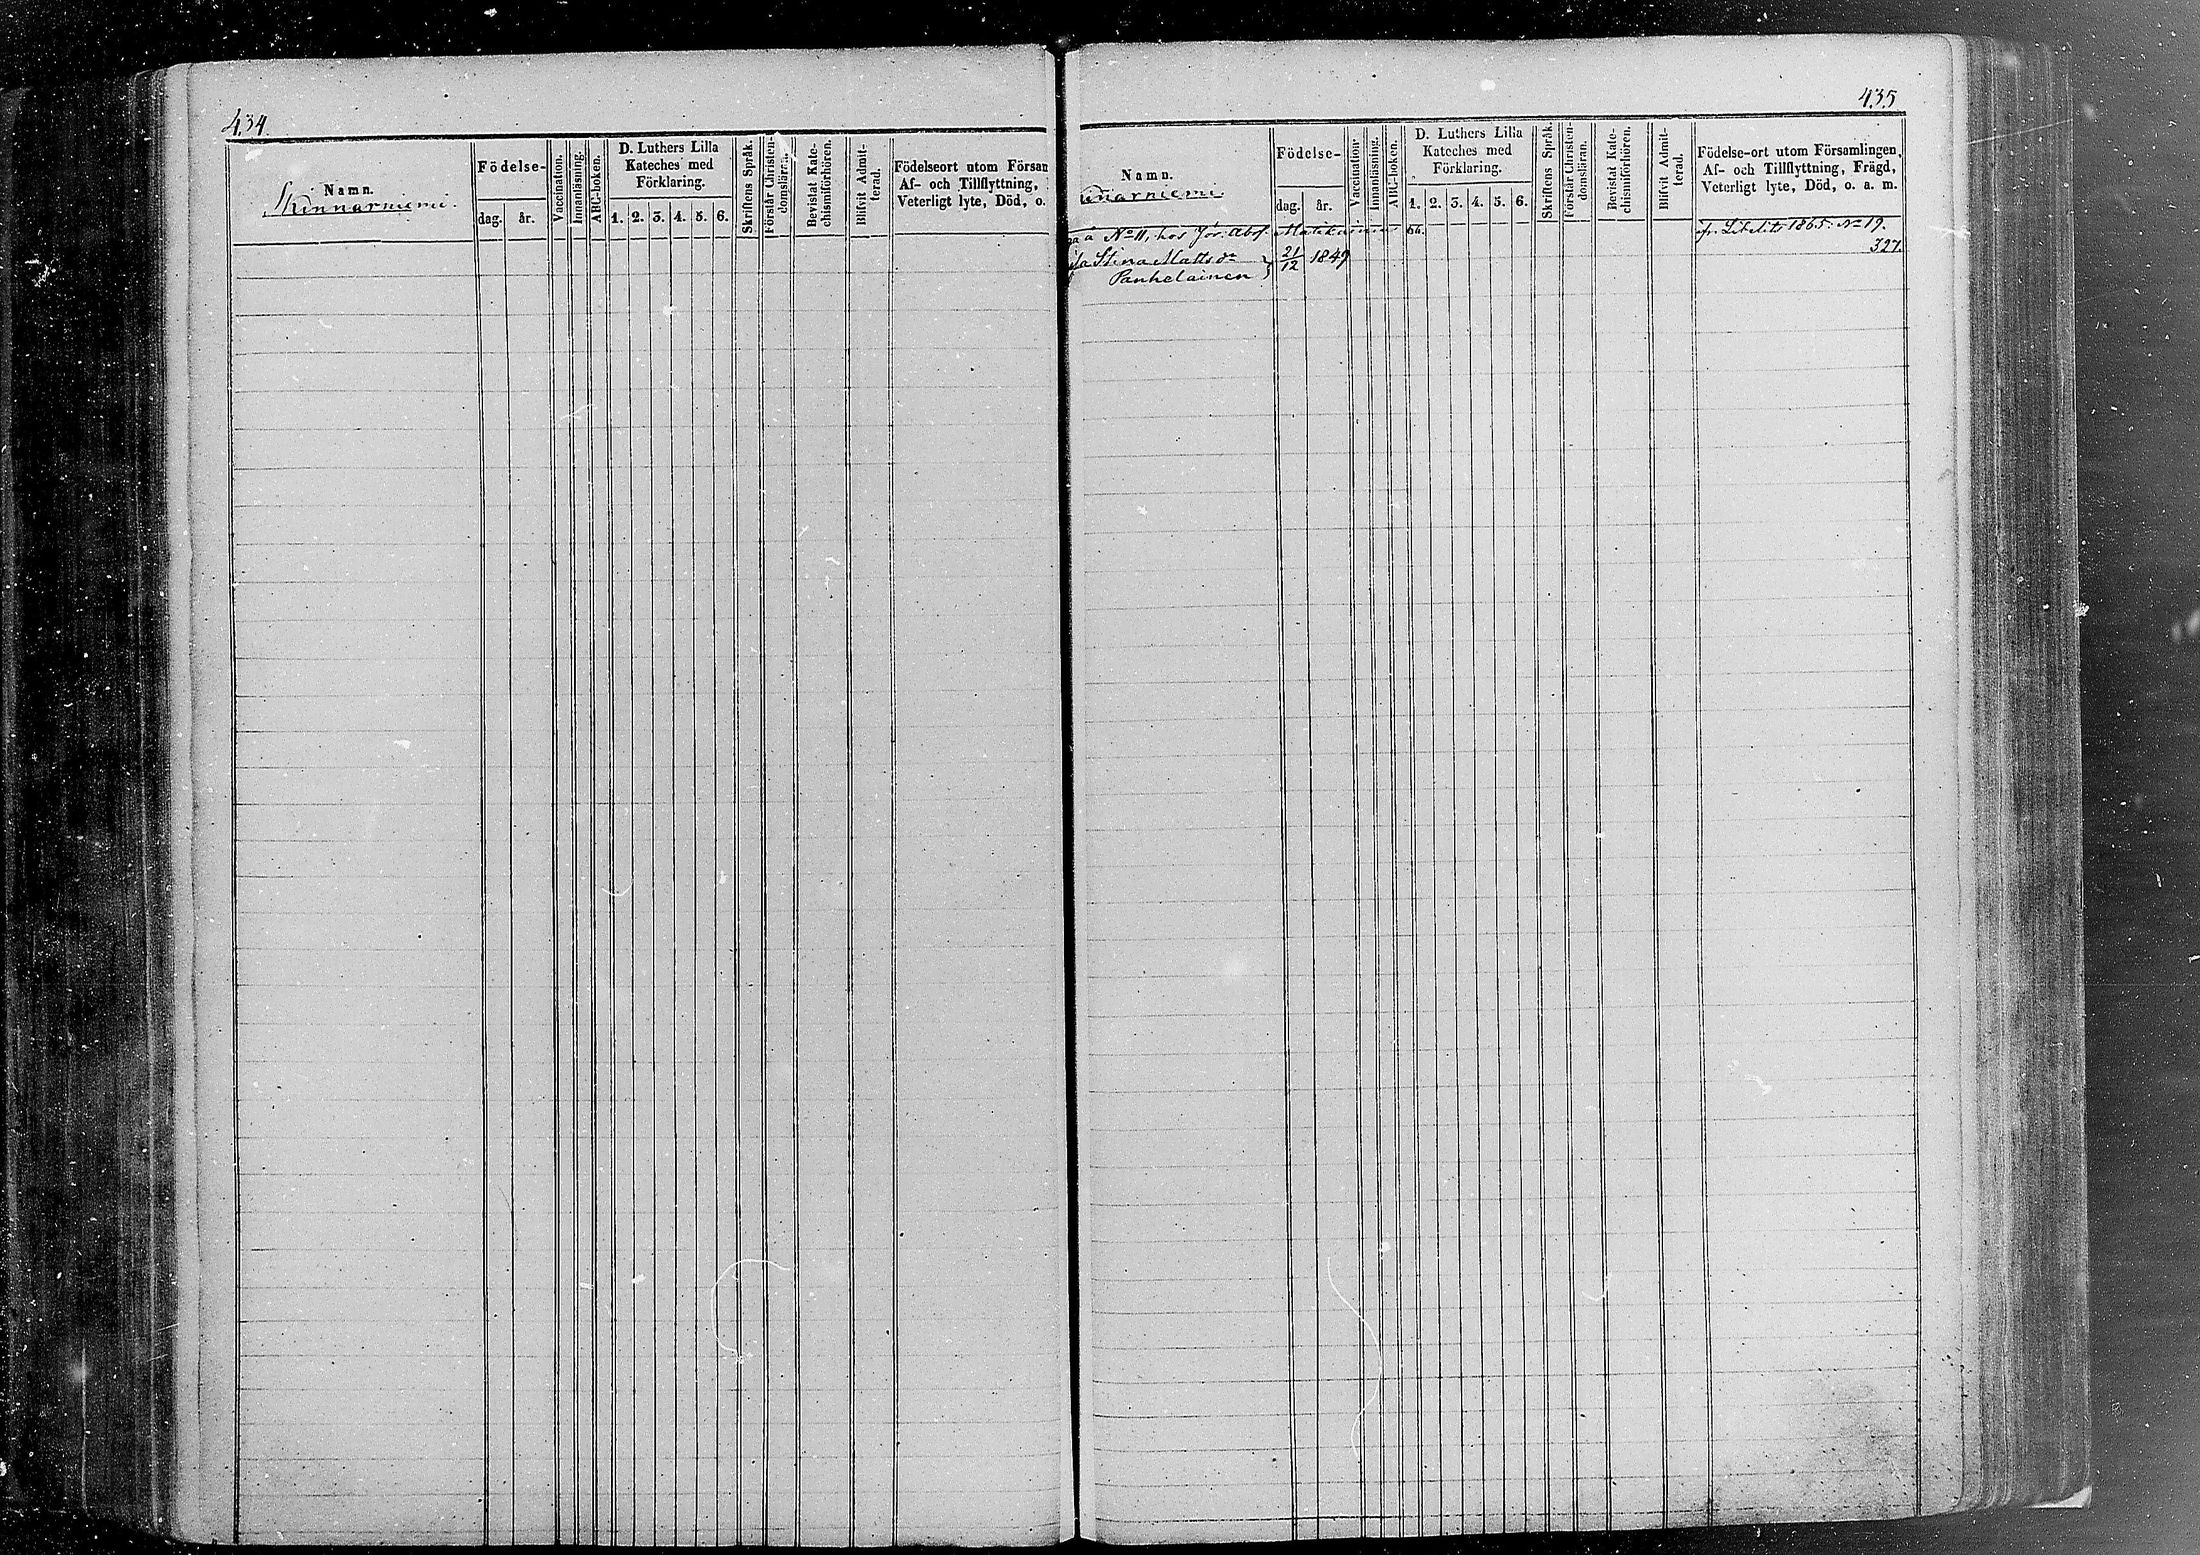 434.
Namn.
Skinnarniemi.
Födelse-
dag. år.
Vaccination.
Innanläsning.
ABC-boken.
D. Luthers Lilla
Kateches med
Förklaring.
1. 2. 3. 4. 5. 6.
Skriftens Språk.
Förstår Christen-
domsläran.
Bevistat Kate-
chismiförhören.
Blifvit Admit-
terad.
Födelseort utom Försam
Af- och Tillflyttning,
Veterligt lyte, Död, o.
435
Namn.
narniemi.
Födelse-
dag. år.
Vaccination.
Innanläsning.
ABC-boken.
D. Luthers Lilla
Kateches med
Förklaring.
1. 2. 3. 4. 5. 6.
Skriftens Språk.
Förstår Christen-
domsläran.
Bevistat Kate-
chismiförhören.
Blifvit Admit-
terad.
Födelse-ort utom Församlingen,
Af- och Tillflyttning, Frägd,
Veterligt lyte, Död, o. a. m.
å No 11, hos
Stina Matts dr 21/12 1849
Panhelainen
fr. Libelits 1865: No 19.
327.